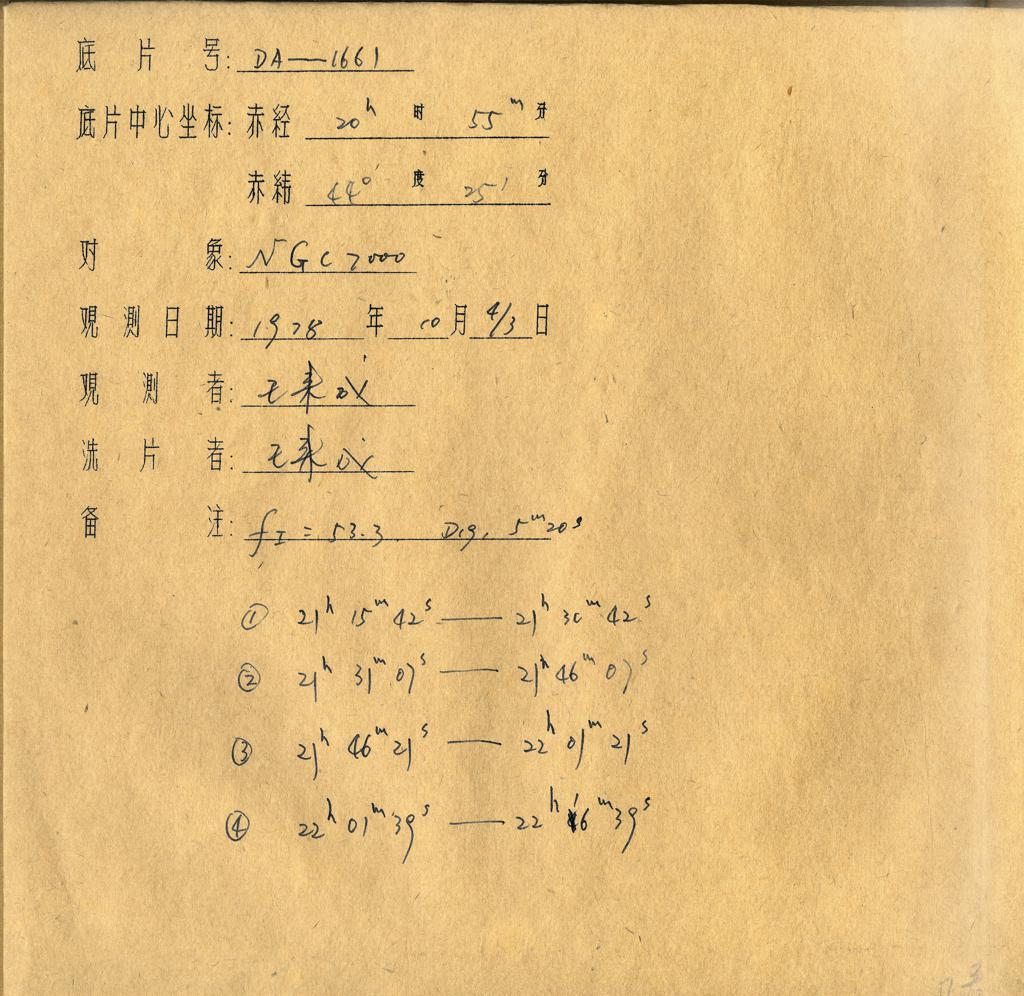 底片号: DA—1661
底片中心坐标: 赤经 20ʰ 时 55ᵐ 分
赤纬 44° 度 25′ 分
对象: NGC 7000
观测日期: 1978 年 10 月 4/3 日
观测者: 王来成
洗片者: 王来成
备注: f_I = 53.3. Dig. 5ᵐ20ˢ
① 21ʰ 15ᵐ 42ˢ — 21ʰ 30ᵐ 42ˢ
② 21ʰ 31ᵐ 07ˢ — 21ʰ 46ᵐ 07ˢ
③ 21ʰ 46ᵐ 21ˢ — 22ʰ 01ᵐ 21ˢ
④ 22ʰ 01ᵐ 39ˢ — 22ʰ 16ᵐ 39ˢ